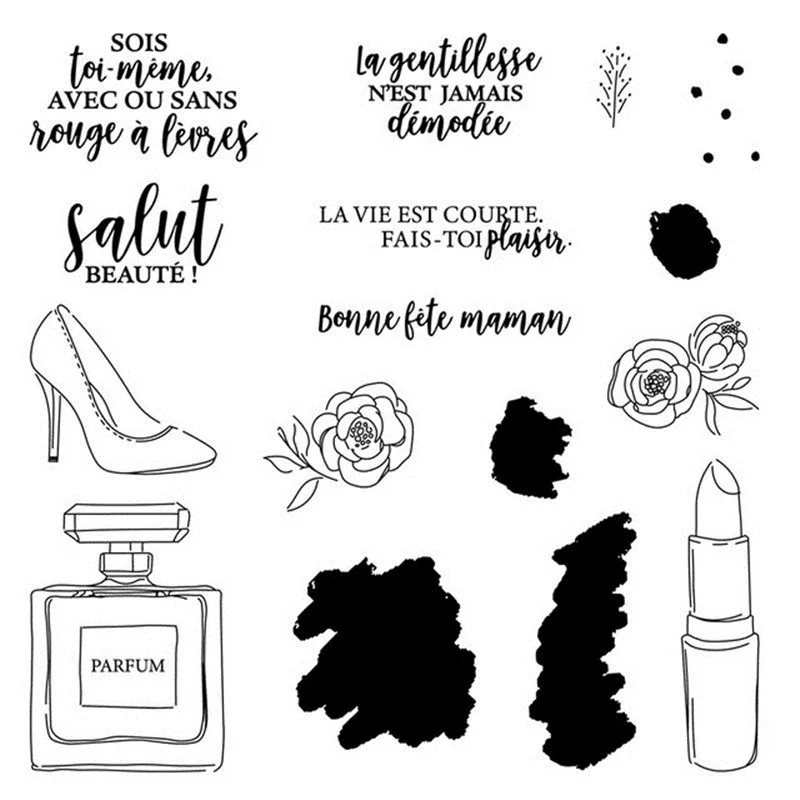 SOIS
toi-même,
AVEC OU SANS
rouge à lèvres
La gentillesse
N'EST JAMAIS
démodée
salut
BEAUTÉ !
LA VIE EST COURTE.
FAIS-TOI plaisir.
Bonne fête maman
PARFUM